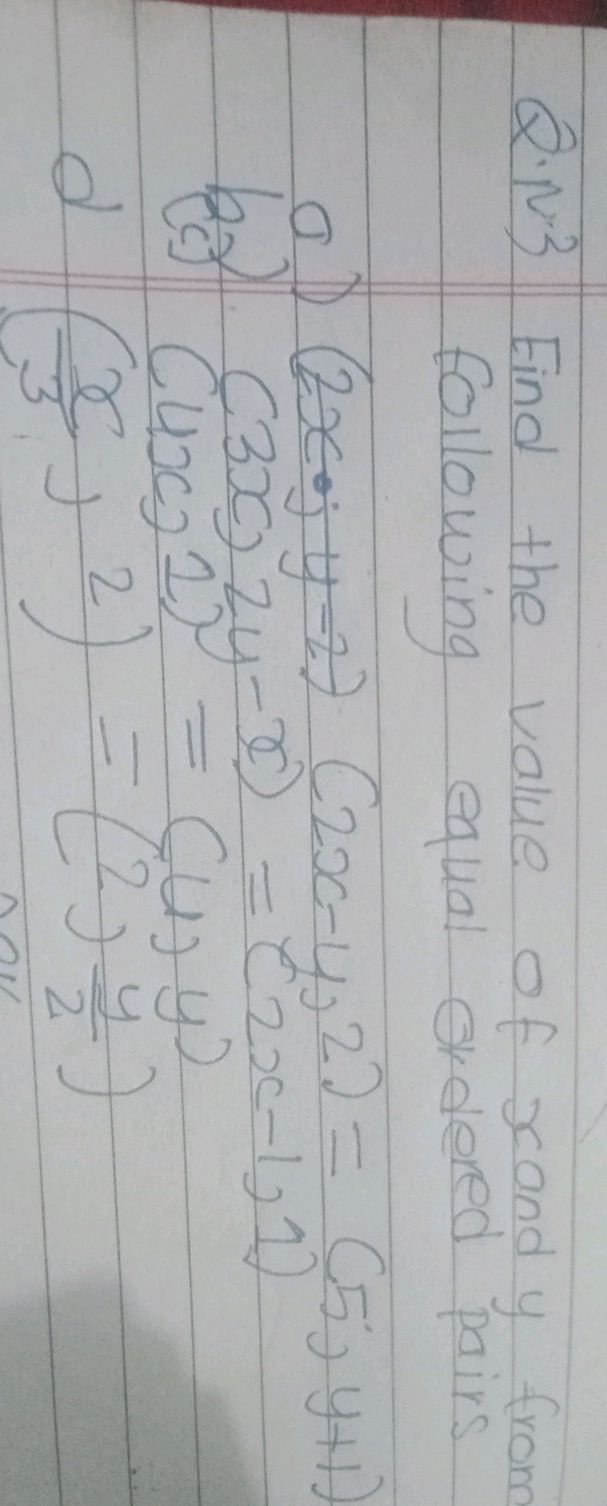 Q.N.3 Find the value of x and y from
following equal ordered pairs
a) (2x, y-2) (2x-y, 2) = (5, y+1)
b) (3x, 2y-x) = (2x-1, 1)
(c) (4x, 1) = (4, y)
d (x/3, 2) = (2, y/2)